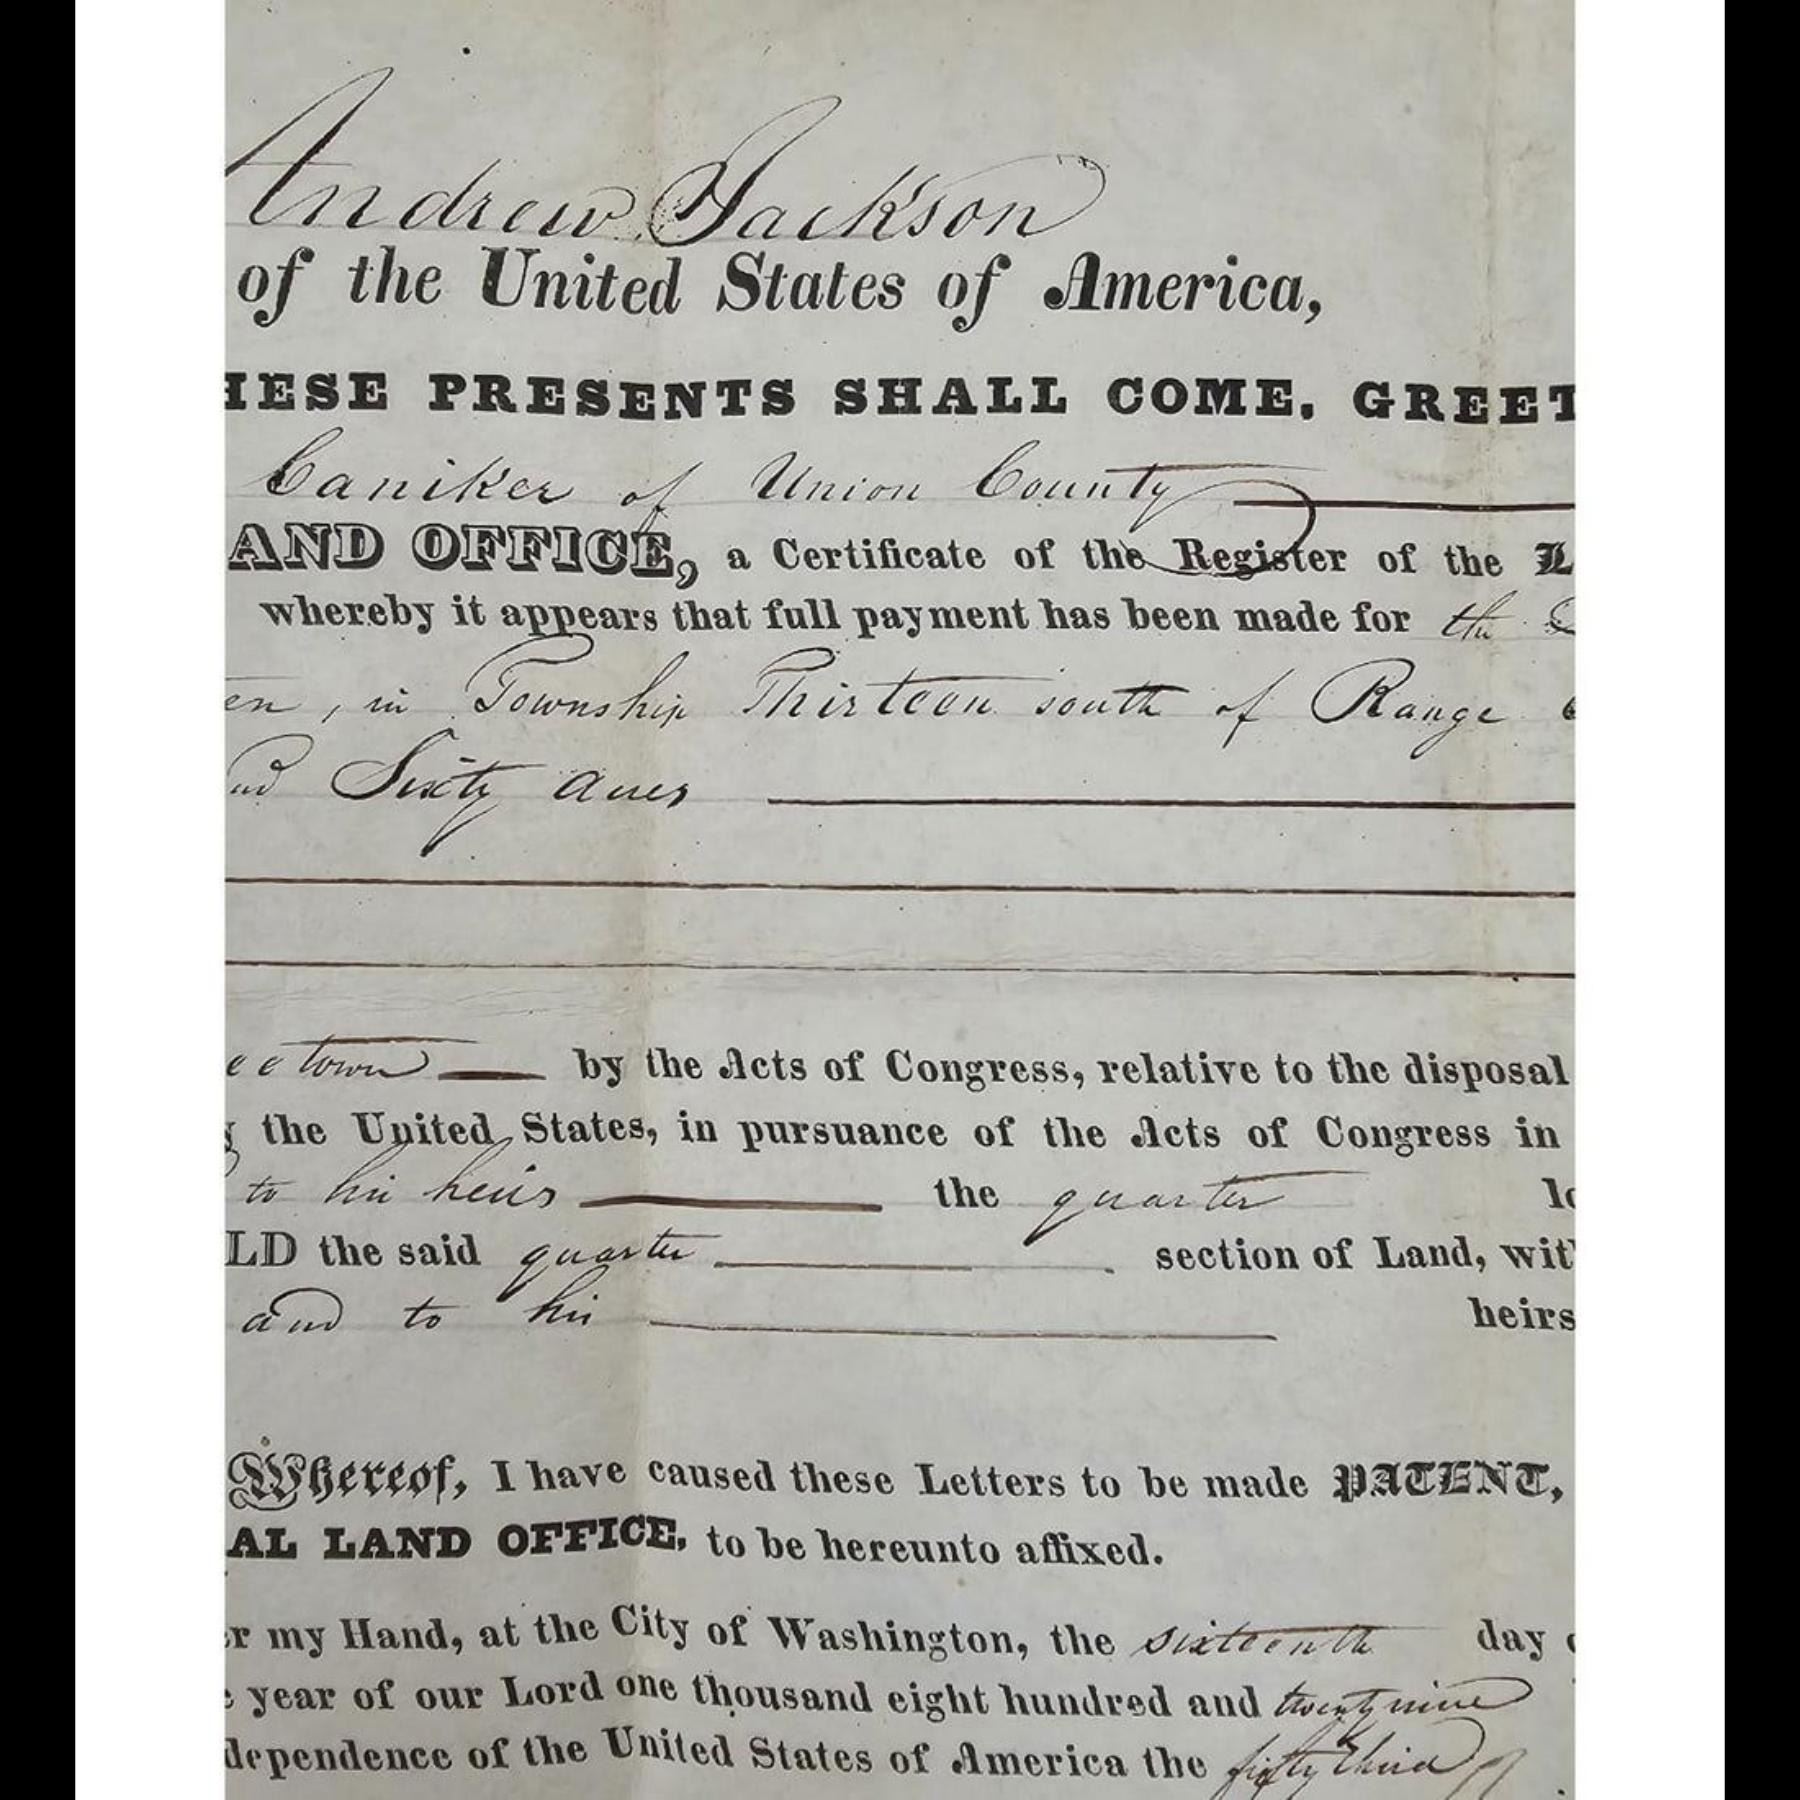 Andrew Jackson
of the United States of America,
HESE PRESENTS SHALL COME, GREET
Caniker of Union County
AND OFFICE, a Certificate of the Register of the L
whereby it appears that full payment has been made for the
en, in Township Thirteen south of Range
nd Sixty acres
ee town by the Acts of Congress, relative to the disposal
g the United States, in pursuance of the Acts of Congress in
to his heirs the quarter lo
LD the said quarter section of Land, wit
and to his heirs
Whereof, I have caused these Letters to be made PATENT,
AL LAND OFFICE, to be hereunto affixed.
r my Hand, at the City of Washington, the sixteenth day o
e year of our Lord one thousand eight hundred and twenty nine
dependence of the United States of America the fifty third